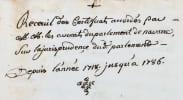 Recueil des Certificats accordés par
MM. les avocats du parlement de navarre,
Sur la jurisprudence du d. parlement
Depuis l'année 1718. jusqu'a 1786.